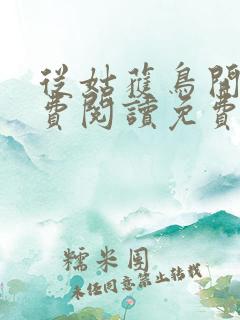 從姑獲鳥開
費閱讀免費
糯米團
未經同意禁止轉載